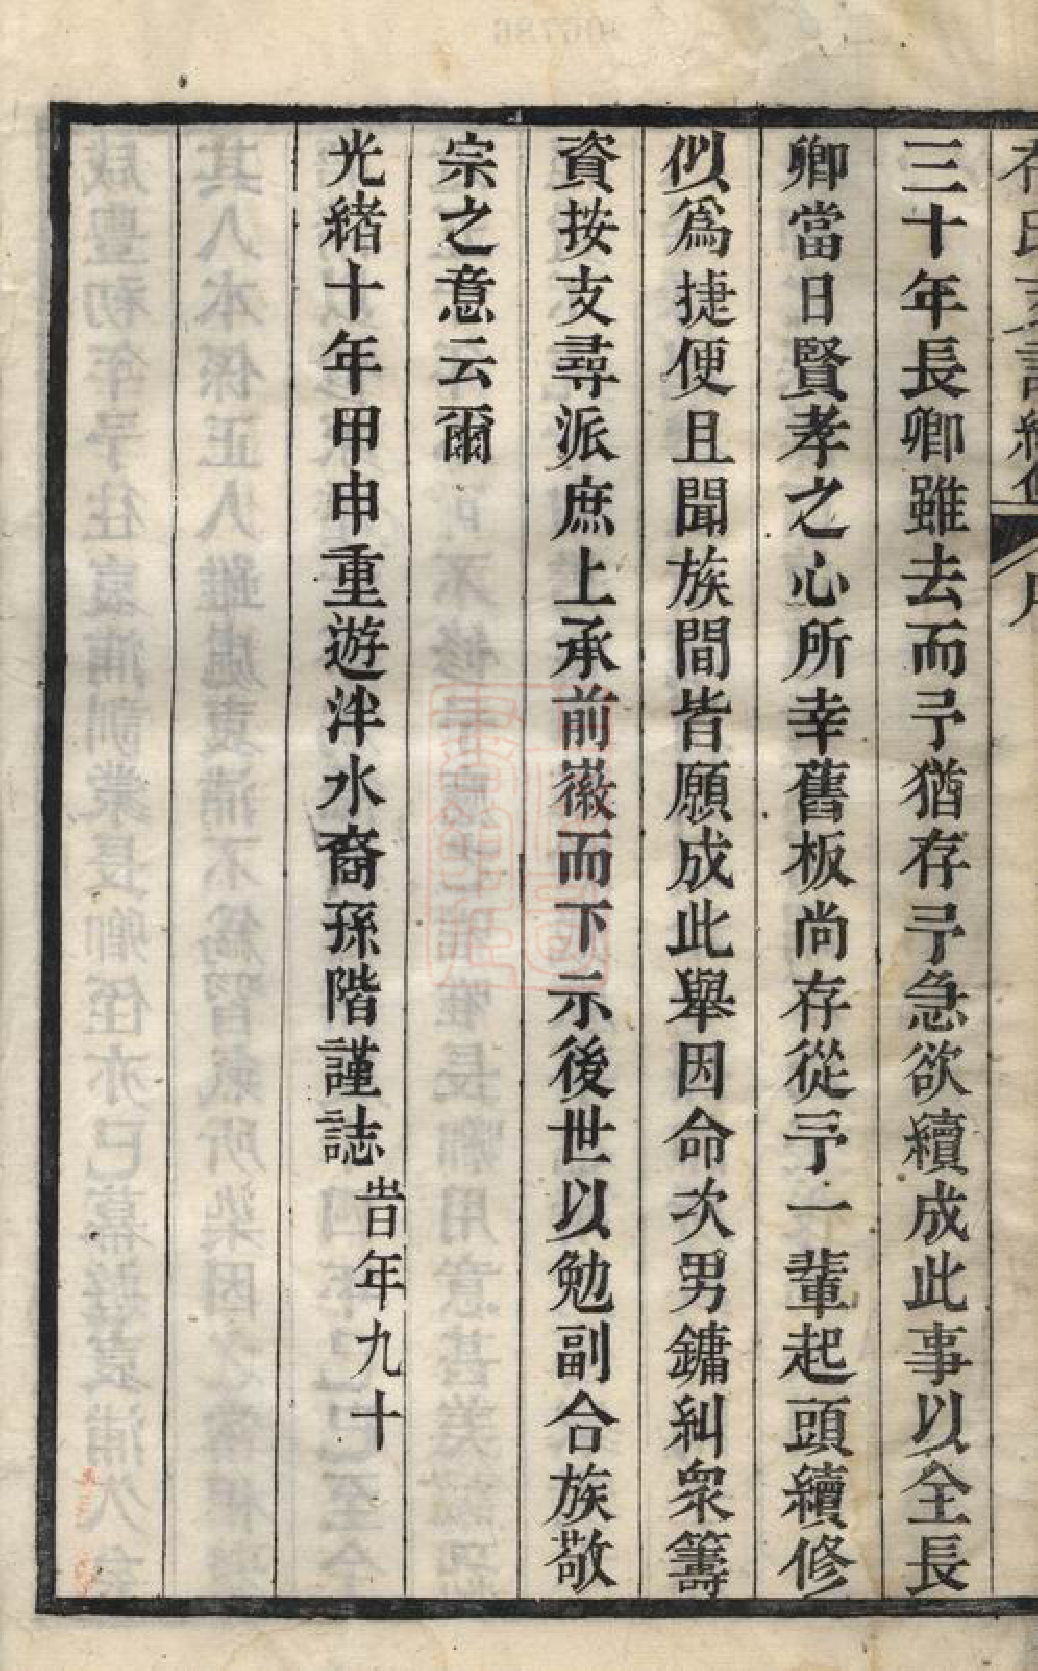 三十年長卿雖去而予猶存予急欲續成此事以全長
卿當日賢孝之心所幸舊板尚存從予一輩起頭續修
似爲捷便且聞族間皆願成此舉因命次男鏞糾衆籌
資按支尋派庶上承前徽而下示後世以勉副合族敬
宗之意云爾
光緒十年甲申重遊泮水裔孫階謹誌
旹年九十